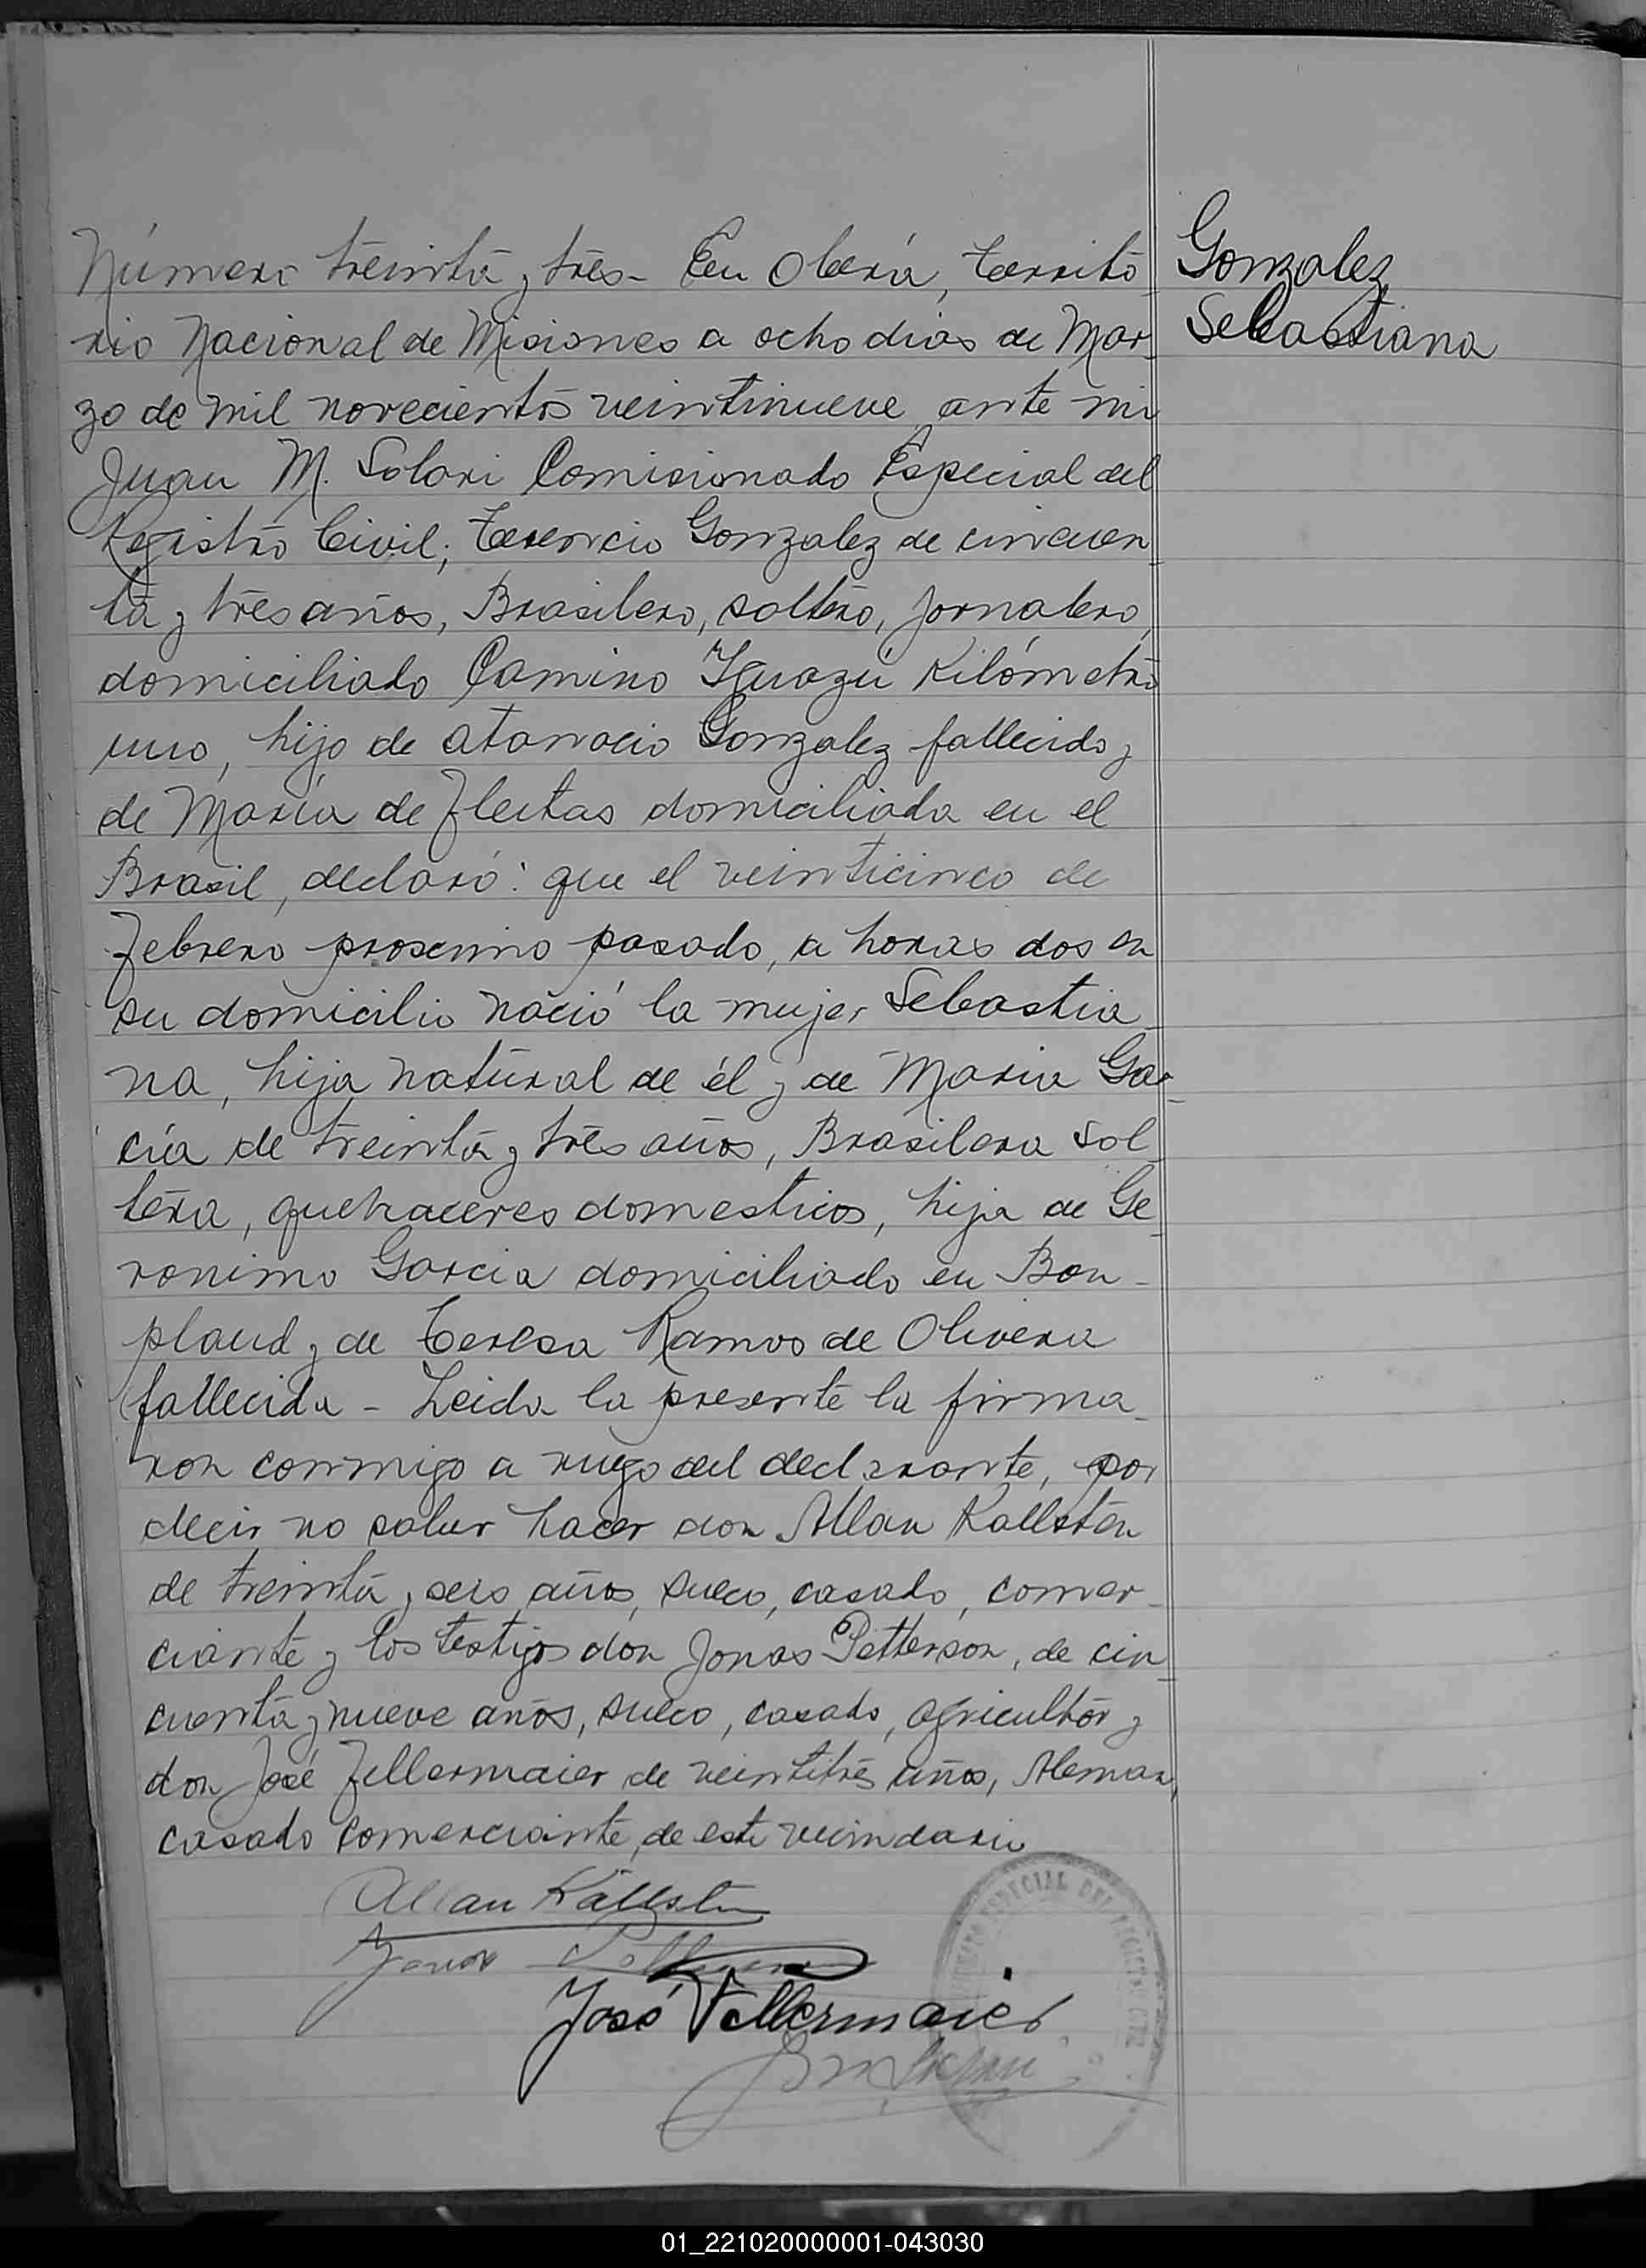 Gonzalez
Sebastiana
Número treinta y tres - En Oberá, territo
rio Nacional de Misiones a ocho dias de Mar-
zo de mil novecientos veintinueve ante mi
Juan M. Solari Comisionado Especial del
Registro Civil; Terencio Gonzalez de cincuen
ta y tres años, Brasilero, soltero, jornalero,
domiciliado Camino Iguazú Kilómetro
uno, hijo de Atanacio Gonzalez fallecido y
de María de Fleitas domiciliada en el
Brasil, declaró: que el veinticinco de
Febrero procsimo pasado, a horas dos en
su domicilio nació la mujer Sebastia
na, hija natural de él y de Maria Gar
cía de treinta y tres años, Brasilera sol
tera, quehaceres domesticos, hija de Ge
ronimo Garcia domiciliado en Bon-
pland y de Teresa Ramos de Olivera
fallecida - Leida la presente la firma
ron conmigo a ruego del declarante, por
decir no saber hacer don Allan Kallsten
de treinta y seis años, sueco, casado, comer
ciante y los testigos don Jonas Petterson, de cin
cuenta y nueve años, sueco, casado, agricultor y
don José Fellermaier de veintitrés años, Aleman,
casado comerciante, de este vecindario
Allan Källsten
Jonas Petterson
José Fellermaier
ESPECIAL DEL REGISTRO CIVIL
01_221020000001-043030